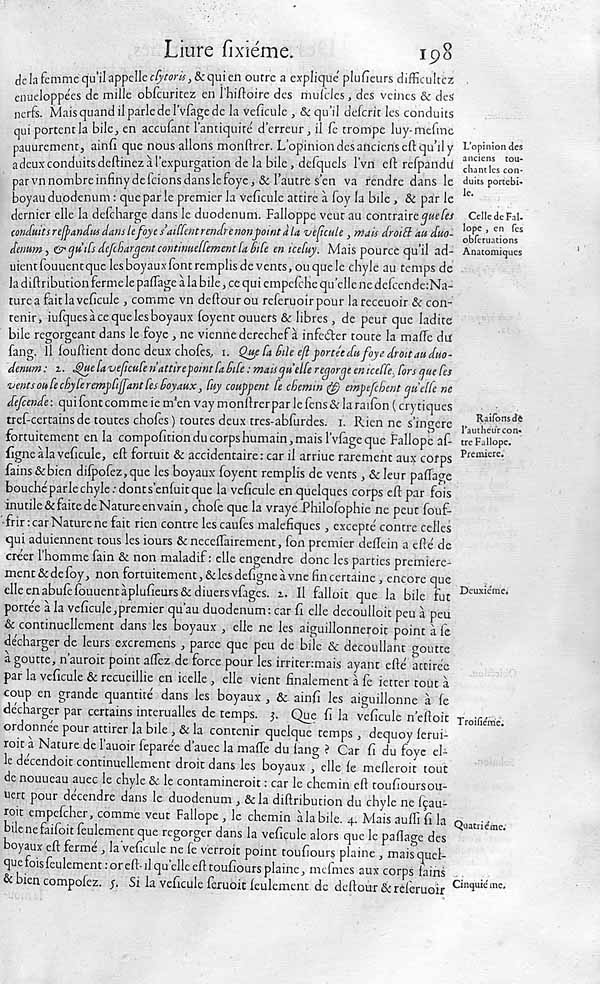 Liure ſixiéme. 198
de la femme qu'il appelle clytoris, & qui en outre a expliqué pluſieurs difficultez
enueloppées de mille obſcuritez en l'hiſtoire des muſcles, des veines & des
nerfs. Mais quand il parle de l'vſage de la veſicule, & qu'il deſcrit les conduits
qui portent la bile, en accuſant l'antiquité d'erreur, il ſe trompe luy-meſme
pauurement, ainſi que nous allons monſtrer. L'opinion des anciens eſt qu'il y
a deux conduits deſtinez à l'expurgation de la bile, deſquels l'vn eſt reſpandu
par vn nombre infiny de ſcions dans le foye, & l'autre s'en va rendre dans le
boyau duodenum : que par le premier la veſicule attire à ſoy la bile, & par le
dernier elle la deſcharge dans le duodenum. Falloppe veut au contraire que ſes
conduits reſpandus dans le foye s'aillent rendre non point à la veſicule, mais droict au duo-
denum, & qu'ils deſchargent continuellement la bile en iceluy. Mais pource qu'il ad-
uient ſouuent que les boyaux ſont remplis de vents, ou que le chyle au temps de
la diſtribution ferme le paſſage à la bile, ce qui empeſche qu'elle ne deſcende: Na-
ture a fait la veſicule, comme vn deſtour ou reſeruoir pour la receuoir & con-
tenir, iuſques à ce que les boyaux ſoyent ouuers & libres, de peur que ladite
bile regorgeant dans le foye, ne vienne derechef à infecter toute la maſſe du
ſang. Il ſouſtient donc deux choſes, 1. Que la bile eſt portée du foye droit au duo-
denum : 2. Que la veſicule n'attire point la bile : mais qu'elle regorge en icelle, lors que les
vents ou le chyle rempliſſant les boyaux, luy couppent le chemin & empeſchent qu'elle ne
deſcende : qui ſont comme ie m'en vay monſtrer par le ſens & la raiſon (crytiques
treſ-certains de toutes choſes) toutes deux tres-abſurdes. 1. Rien ne s'ingere
fortuitement en la compoſition du corps humain, mais l'vſage que Fallope aſ-
ſigne à la veſicule, eſt fortuit & accidentaire: car il arriue rarement aux corps
ſains & bien diſpoſez, que les boyaux ſoyent remplis de vents, & leur paſſage
bouché par le chyle : dont s'enſuit que la veſicule en quelques corps eſt par fois
inutile & faite de Nature en vain, choſe que la vraye Philoſophie ne peut ſouf-
frir : car Nature ne fait rien contre les cauſes malefiques, excepté contre celles
qui aduiennent tous les iours & neceſſairement, ſon premier deſſein a eſté de
créer l'homme ſain & non maladif : elle engendre donc les parties premiere-
ment & de ſoy, non fortuitement, & les deſigne à vne fin certaine, encore que
elle en abuſe ſouuent à pluſieurs & diuers vſages. 2. Il falloit que la bile fut
portée à la veſicule, premier qu'au duodenum: car ſi elle decoulloit peu à peu
& continuellement dans les boyaux, elle ne les aiguillonneroit point à ſe
décharger de leurs excremens, parce que peu de bile & decoullant goutte
à goutte, n'auroit point aſſez de force pour les irriter: mais ayant eſté attirée
par la veſicule & recueillie en icelle, elle vient finalement à ſe ietter tout à
coup en grande quantité dans les boyaux, & ainſi les aiguillonne à ſe
décharger par certains interualles de temps. 3. Que ſi la veſicule n'eſtoit
ordonnée pour attirer la bile, & la contenir quelque temps, dequoy ſerui-
roit à Nature de l'auoir ſeparée d'auec la maſſe du ſang ? Car ſi du foye el-
le décendoit continuellement droit dans les boyaux, elle ſe meſleroit tout
de nouueau auec le chyle & le contamineroit : car le chemin eſt touſiours ou-
uert pour décendre dans le duodenum, & la diſtribution du chyle ne ſçau-
roit empeſcher, comme veut Fallope, le chemin à la bile. 4. Mais auſſi ſi la
bile ne faiſoit ſeulement que regorger dans la veſicule alors que le paſſage des
boyaux eſt fermé, la veſicule ne ſe verroit point touſiours plaine, mais quel-
que fois ſeulement : or eſt-il qu'elle eſt touſiours plaine, meſmes aux corps ſains
& bien compoſez. 5. Si la veſicule ſeruoit ſeulement de deſtour & reſeruoir
L'opinion des
anciens tou-
chant les con-
duits portebi-
le.
Celle de Fal-
lope, en ſes
obſeruations
Anatomiques
Raiſons de
l'autheur con-
tre Fallope.
Premiere.
Deuxiéme.
Troiſiéme.
Quatriéme.
Cinquiéme.